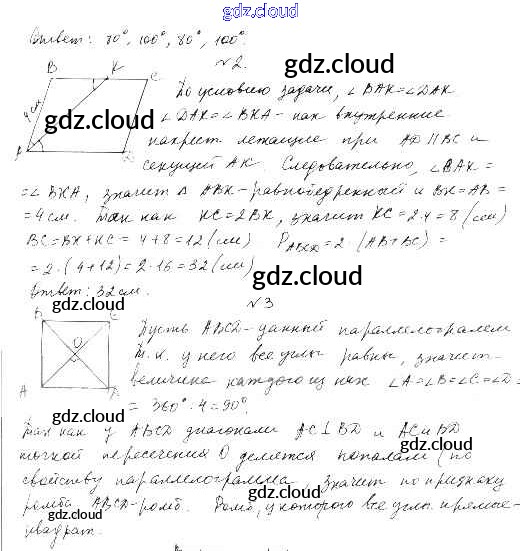 gdz.cloud
Ответ: 80°, 100°, 80°, 100°.
№2.
B K C
4 см
A D
gdz.cloud
По условию задачи, ∠BAK = ∠DAK
∠DAK = ∠BKA - как внутренние
gdz.cloud
накрест лежащие при AD || BC и
секущей AK. Следовательно, ∠BAK =
= ∠BKA, значит Δ ABK - равнобедренный и BK = AB =
= 4 см. Так как KC = 2BK, значит KC = 2·4 = 8 (см)
gdz.cloud gdz.cloud
BC = BK + KC = 4+8 = 12 (см) P ABCD = 2 (AB+BC) =
= 2·(4+12) = 2·16 = 32 (см)
gdz.cloud
Ответ: 32 см.
gdz.cloud
№3
B C
O
A D
Пусть ABCD - данный параллелограмм
Т.к. у него все углы равны, значит
gdz.cloud
величина каждого из них ∠A = ∠B = ∠C = ∠D =
= 360° : 4 = 90°.
gdz.cloud
Так как у ABCD диагонали AC ⊥ BD и AC и BD
точкой пересечения O делятся пополам (по
gdz.cloud
свойству параллелограмма, значит по признаку
ромба ABCD - ромб. Ромб, у которого все углы прямые -
gdz.cloud
квадрат.
gdz.cloud